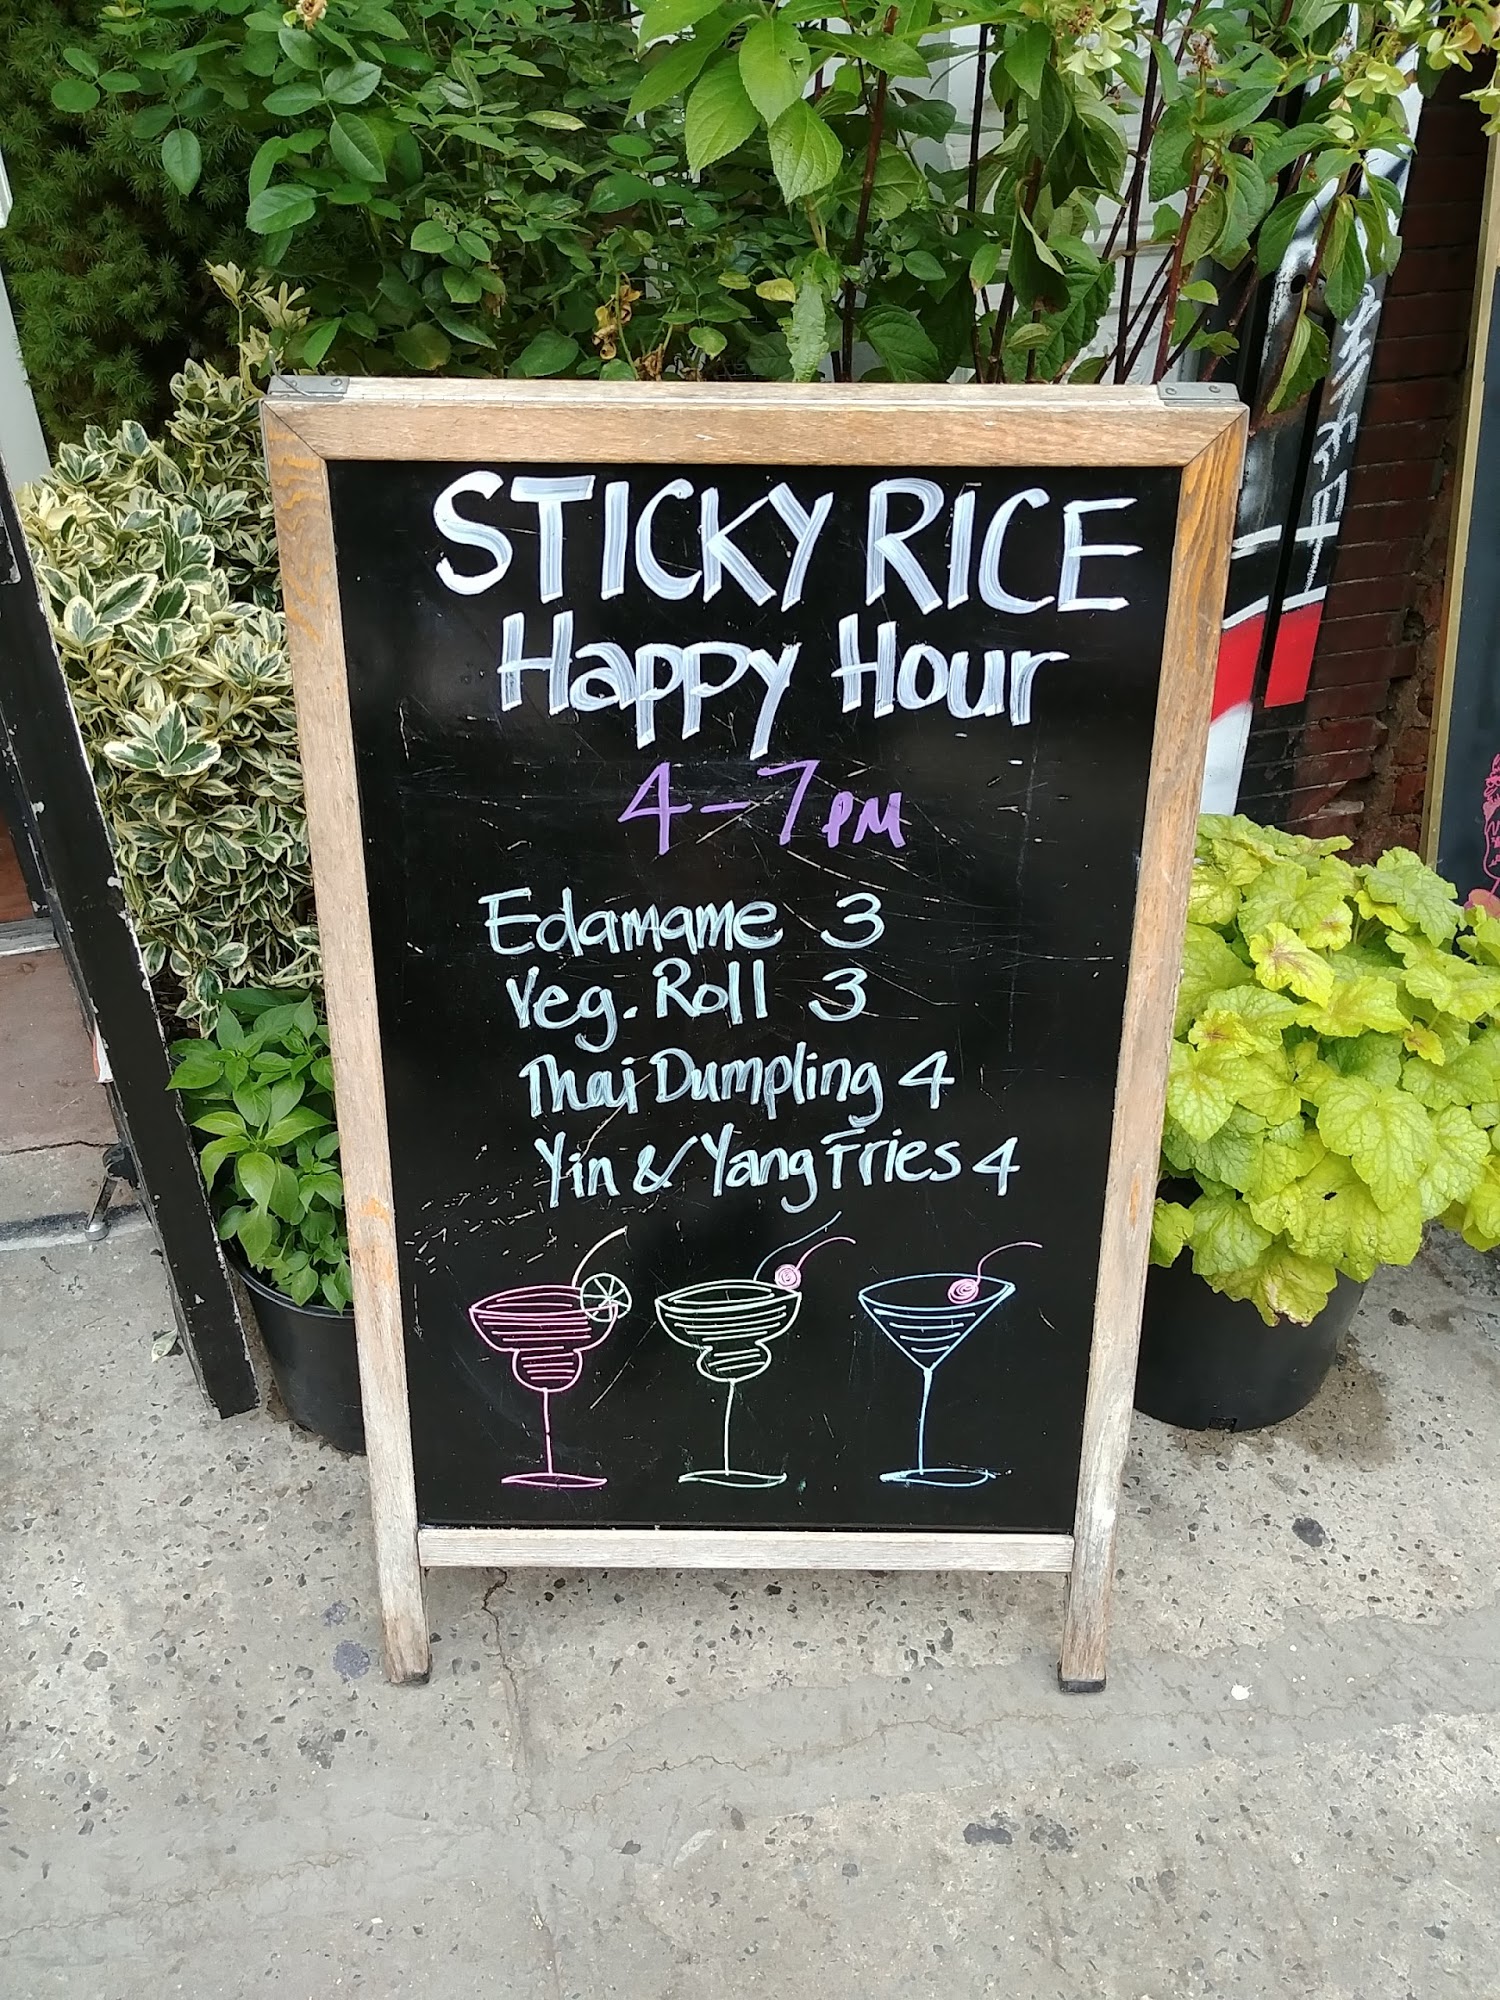 STICKY RICE
Happy Hour
4-7PM
Edamame 3
Veg. Roll 3
Thai Dumpling 4
Yin & Yang Fries 4